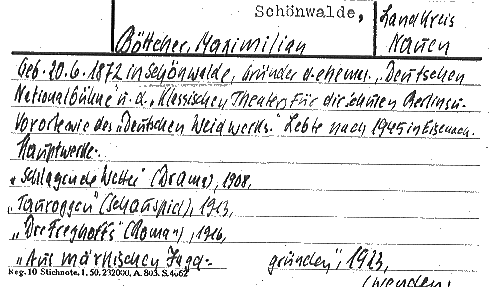 Schönwalde, Landkreis
Böttcher, Maximilian Nauen
Geb. 20.6.1872 in Schönwalde, Gründer d. ehemal. "Deutschen
Nationalbühne" u. d. "Klassischen Theaters für die Schulen Berlins u.
Vororte wie des "Deutschen Weidwerks." Lebte nach 1945 in Eisenach.
Hauptwerke:
"Schlagende Wetter" (Drama), 1908,
"Tauroggen" (Schauspiel), 1913,
"Die Freyhoffs" (Roman), 1916,
"Aus märkischen Jagd- gründen", 1923,
Reg. 10 Stichnote. I. 50. 232000. A. 803. S. 4062 (wenden!